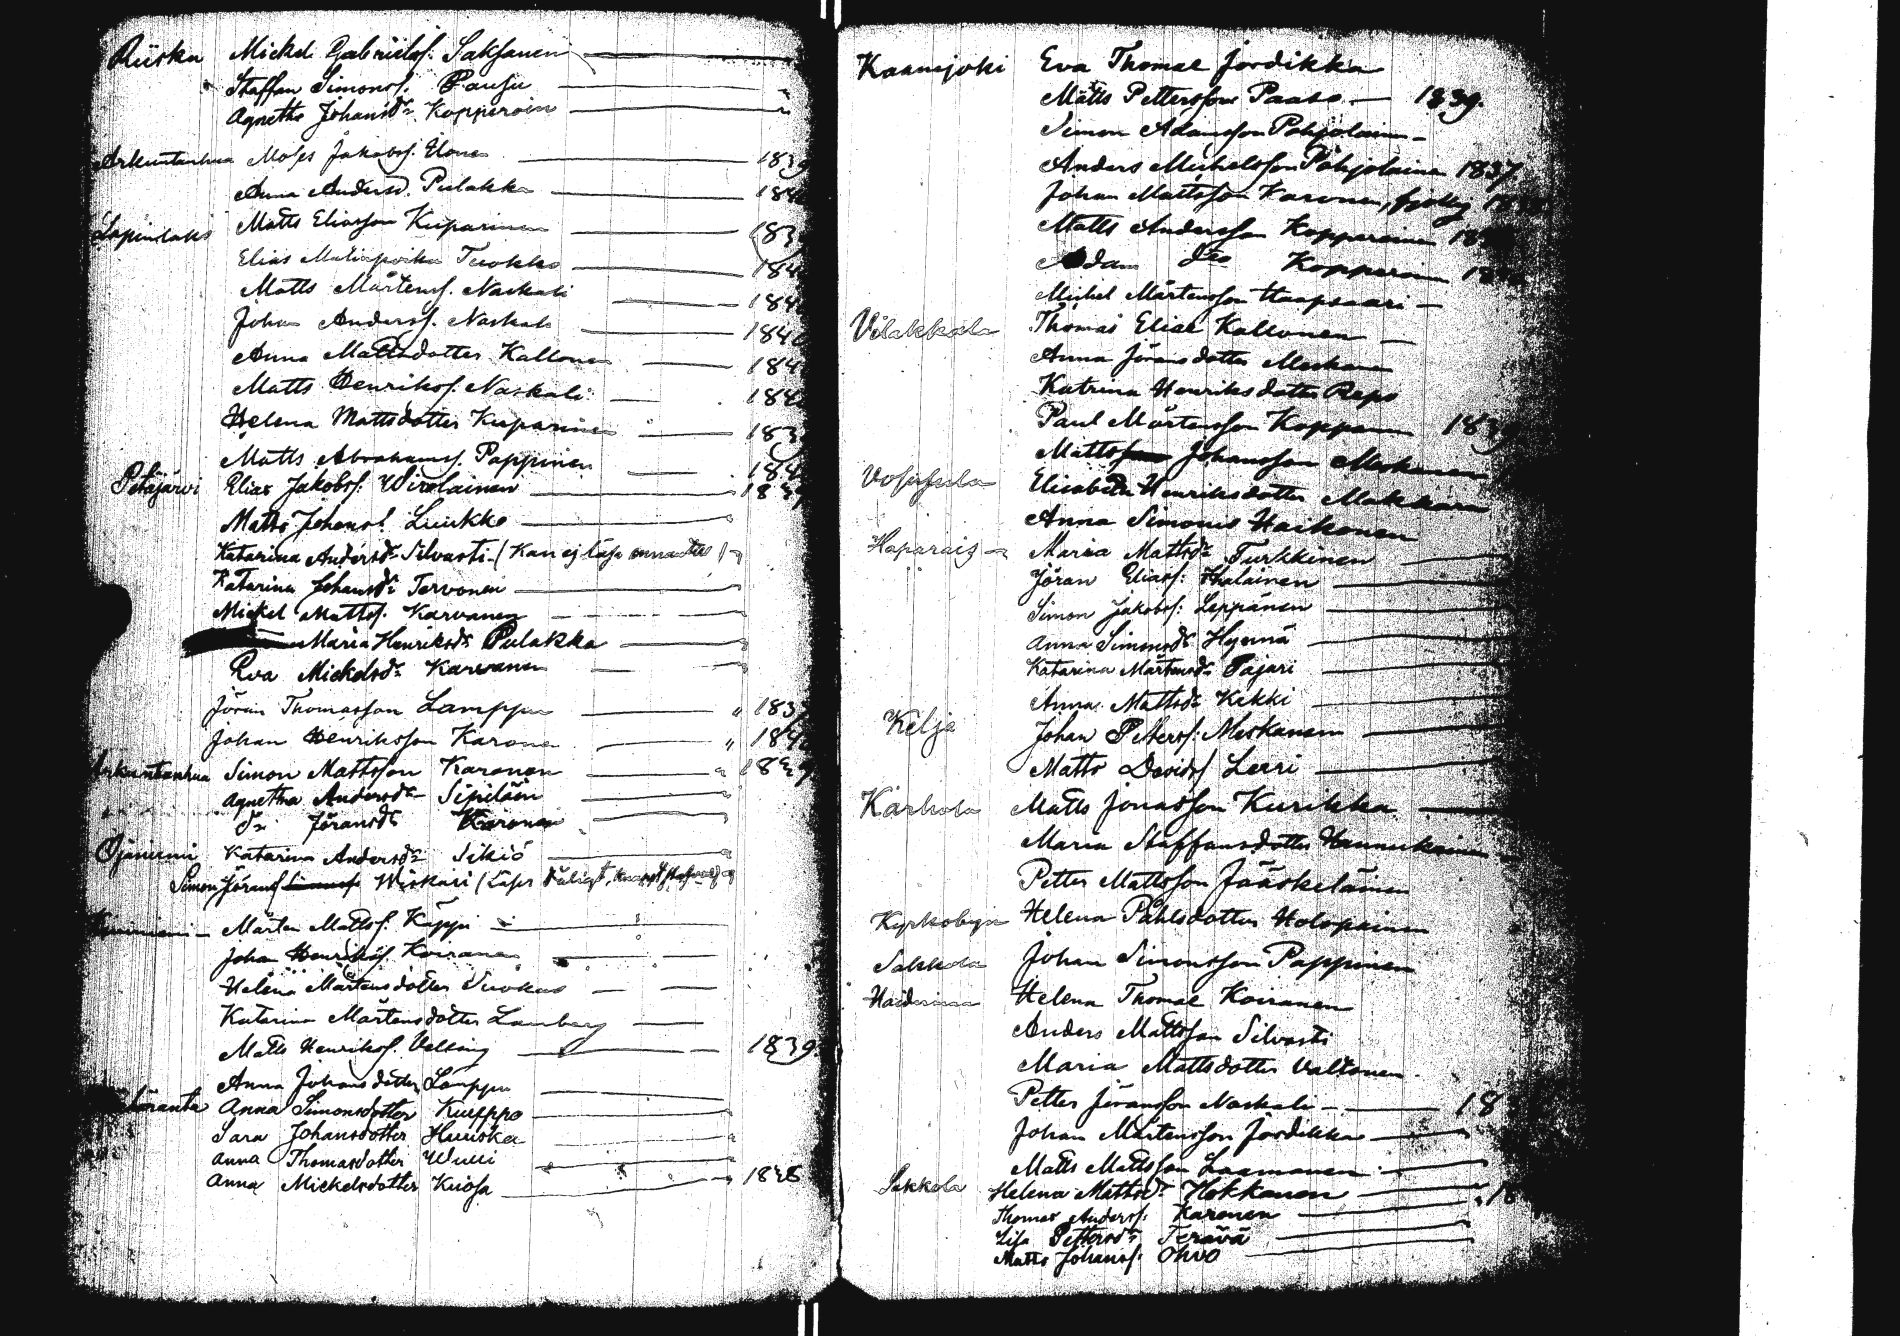 Riiska Mickel Gabrielss. Saksanen
Staffan Simonss. Pausu
Agnetha Johansdr Kopperoin
Arkuntanhua Moses Jakobss. Ilonen 1839
Anna Andersd. Pulakka 184
Lapinlaks Matts Eliasson Kuparinen 183
Elias Matinpoika Tuokko 184
Matts Mårtenss. Naskali 184
Johan Anderss. Naskali 184
Anna Mattsdotter Kallonen 184
Matts Henrikss. Naskali 184
Helena Mattsdotter Kuparinen 183
Matts Abrahamss. Pappinen 184
Petäjärvi Elias Jakobss. Wirolainen 1839
Matts Johanss. Luukko
Katarina Andersdr Silvasti (Kan ej läsa
Katarina Johansdr Tervonen
Mickel Mattss. Karvanen
Maria Henriksdr Pulakka
Eva Mickelsdr Karvanen
Jöran Thomasson Lamppu " 183
Johan Henriksson Karonen " 184
Arkuntanhua Simon Mattsson Karonen 1839
Agnetha Andersdr Sipiläin
Do Jöransdr Karonen
Ojaniemi Katarina Andersdr Sikiö
Simon Jöranss. Wiskari (Läser dåligt,
Mårten Mattss. Käppi
Johan Henrikss. Koiranen
Helena Mårtensdotter Suokas
Katarina Mårtensdotter Lamberg
Matts Henrikss. Velling 1839.
Anna Johansdotter Lamppu
Anna Simonsdotter Kurppa
Sara Johansdotter Huuska
Anna Thomasdotter Wulli
Anna Mickelsdotter Kuosa 1838
Kaansjoki Eva Thomae Jordikka
Matts Pettersson Paaso 1839.
Simon Adamsson Pohjolainen
Anders Michelsson Pohjolainen 1837
Johan Mattsson Karonen,
Matts Andersson Kopperoinen 18
Adam dito Kopperoin 18
Michel Mårtensson Haapsaari
Vilakkala Thomas Eliae Kallonen
Anna Jöransdotter Meskanen
Katrina Henriksdotter Repo
Paul Mårtensson Kopponen 1839
Matts Johansson Meskanen
Elisabeta Henriksdotter Makkara
Anna Simonis Haikonen
Haparais Maria Mattsdr Turkkinen
Jöran Eliass: Ihalainen
Simon Jakobss: Leppänen
Anna Simonsdr Hyennä
Katarina Mårtensdr Pajari
Anna Mattsdr Kekki
Kelja Johan Peterss: Meskanen
Matts Davidss Lerri
Karhola Matts Jonasson Kurikka
Maria Staffansdotter Hannukainen
Petter Mattsson Jääskeläinen
Kyrkobyn Helena Påhlsdotter Holopainen
Sakkola Johan Simonsson Pappinen
Haiderma Helena Thomae Koiranen
Anders Mattsson Silvasti
Maria Mattsdotter Valtonen
Petter Jöransson Naskali 18
Johan Mårtensson Jordikka
Matts Mattsson Laamanen
Sakkola Helena Mattsdr Hokkanen 18
Thomas Anderss: Karonen
Lisa Pettersdr Terävä
Matts Johanss: Ohvo